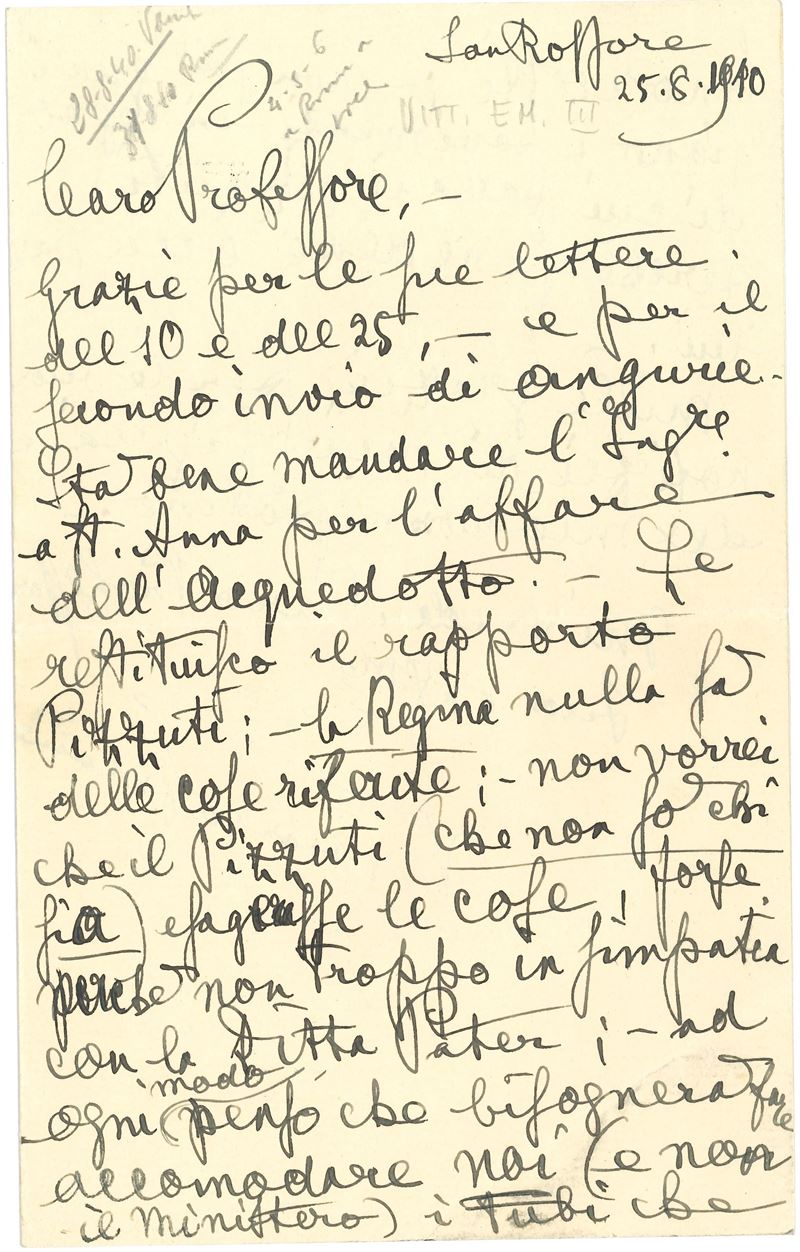 28.8.40.
31.8.40 Roma
4-5-6
a Roma
VITT. EM. III
San Rossore
25.8.1940
Caro Professore, —
Grazie per le sue lettere
del 10 e del 25, — e per il
secondo invio di angurie. -
Sta bene mandare l'Ing.re
a St. Anna per l'affare
dell'Acquedotto. — Le
restituisco il rapporto
Pizzuti; — la Regina nulla sa
delle cose riferite; - non vorrei
che il Pizzuti (che non so chi
sia) esagerasse le cose, forse,
perché non troppo in simpatia
con la Ditta Pater; — ad
ogni modo penso che bisognerà fare
accomodare noi (e non
il ministero) i tubi che